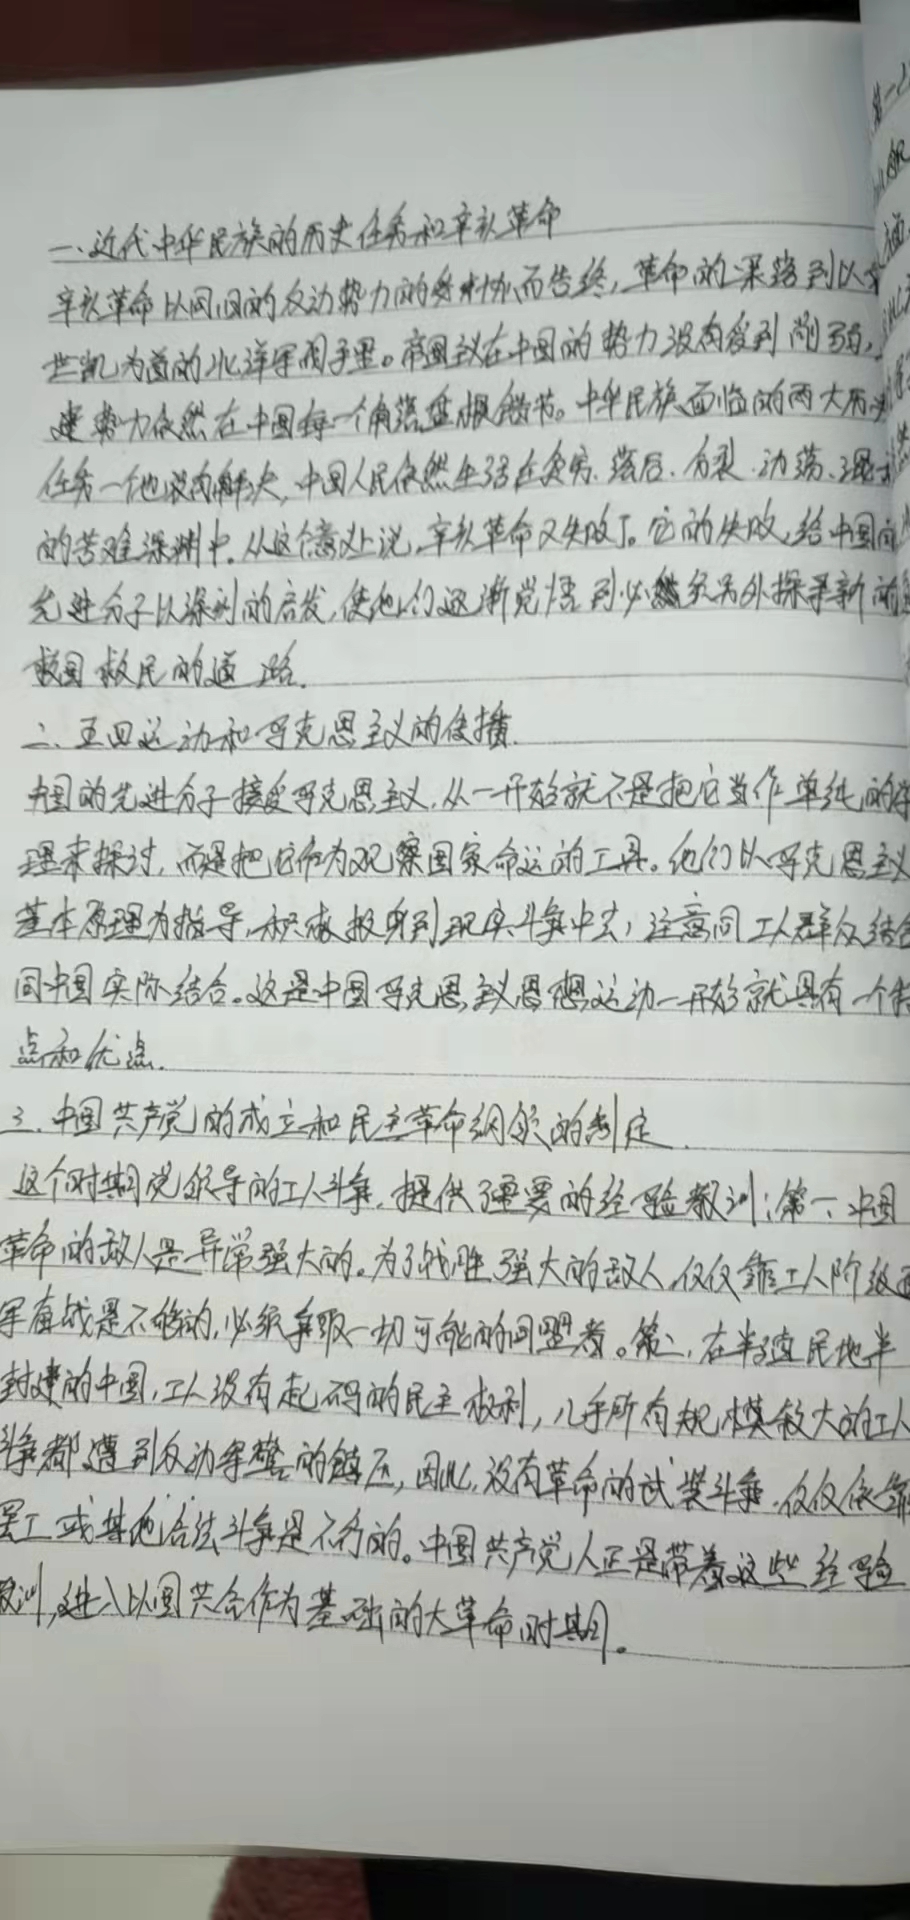 一、近代中华民族的历史任务和辛亥革命
辛亥革命以同旧的反动势力的妥协而告终，革命的果实落到以
世凯为首的北洋军阀手里。帝国主义在中国的势力没有受到削弱，
建势力依然在中国每一个角落盘根错节。中华民族面临的两大历史
任务一个也没有解决，中国人民依然生活在贫穷、落后、分裂、动荡、混
的苦难深渊中。从这个意义上说，辛亥革命又失败了。它的失败，给中国的
先进分子以深刻的启发，使他们逐渐觉悟到必须另外探寻新的
救国救民的道路.
二、五四运动和马克思主义的传播.
中国的先进分子接受马克思主义，从一开始就不是把它当作单纯的学
理来探讨，而是把它作为观察国家命运的工具。他们以马克思主义
基本原理为指导，积极投身到现实斗争中去，注意同工人群众结合
同中国实际结合。这是中国马克思主义思想运动一开始就具有一个特
点和优点.
三、中国共产党的成立和民主革命纲领的制定.
这个时期党领导的工人斗争，提供了重要的经验教训：第一、中国
革命的敌人是异常强大的。为了战胜强大的敌人，仅仅靠工人阶级
军奋战是不够的，必须争取一切可能的同盟者。第二，在半殖民地半
封建的中国，工人没有起码的民主权利，几乎所有规模较大的工人
斗争都遭到反动军警的镇压，因此，没有革命的武装斗争，仅仅依靠
罢工或其他合法斗争是不行的。中国共产党人正是带着这些经验
教训，进入以国共合作为基础的大革命时期。